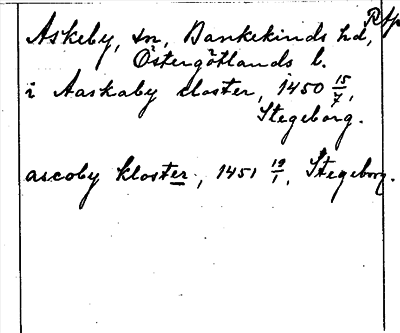 Rhp
Askeby, sn, Bankekinds hd,
Östergötlands l.
i Aaskaby closter, 1450 15/7,
Stegeborg.
ascoby kloster, 1451 19/1, Stegeborg.